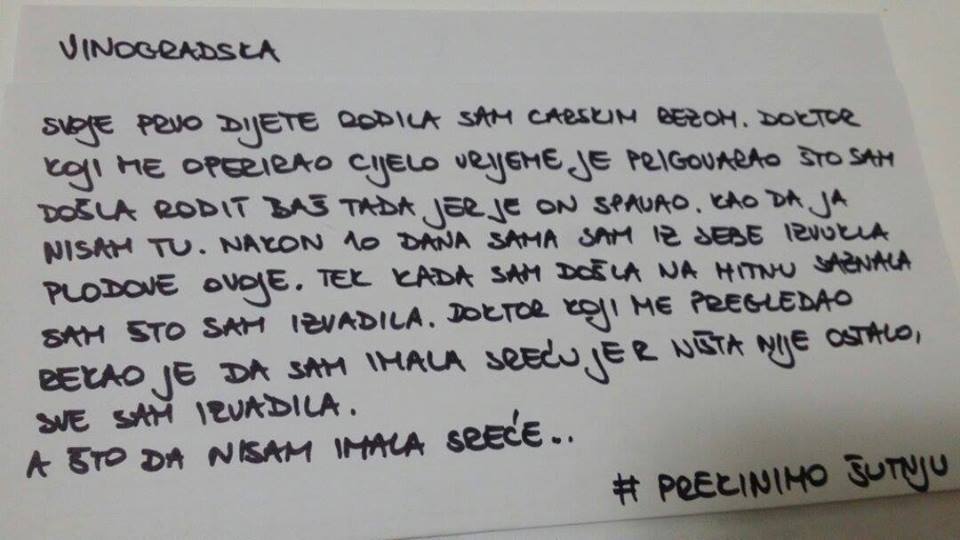 VINOGRADSKA
SVOJE PRVO DIJETE RODILA SAM CARSKIM REZOM. DOKTOR
KOJI ME OPERIRAO CIJELO VRIJEME JE PRIGOVARAO ŠTO SAM
DOŠLA RODIT BAŠ TADA JER JE ON SPAVAO. KAO DA JA
NISAM TU. NAKON 10 DANA SAMA SAM IZ SEBE IZVUKLA
PLODOVE OVOJE. TEK KADA SAM DOŠLA NA HITNU SAZNALA
SAM ŠTO SAM IZVADILA. DOKTOR KOJI ME PREGLEDAO
REKAO JE DA SAM IMALA SREĆU JER NIŠTA NIJE OSTALO,
SVE SAM IZVADILA.
A ŠTO DA NISAM IMALA SREĆE..
# PREKINIMO ŠUTNJU